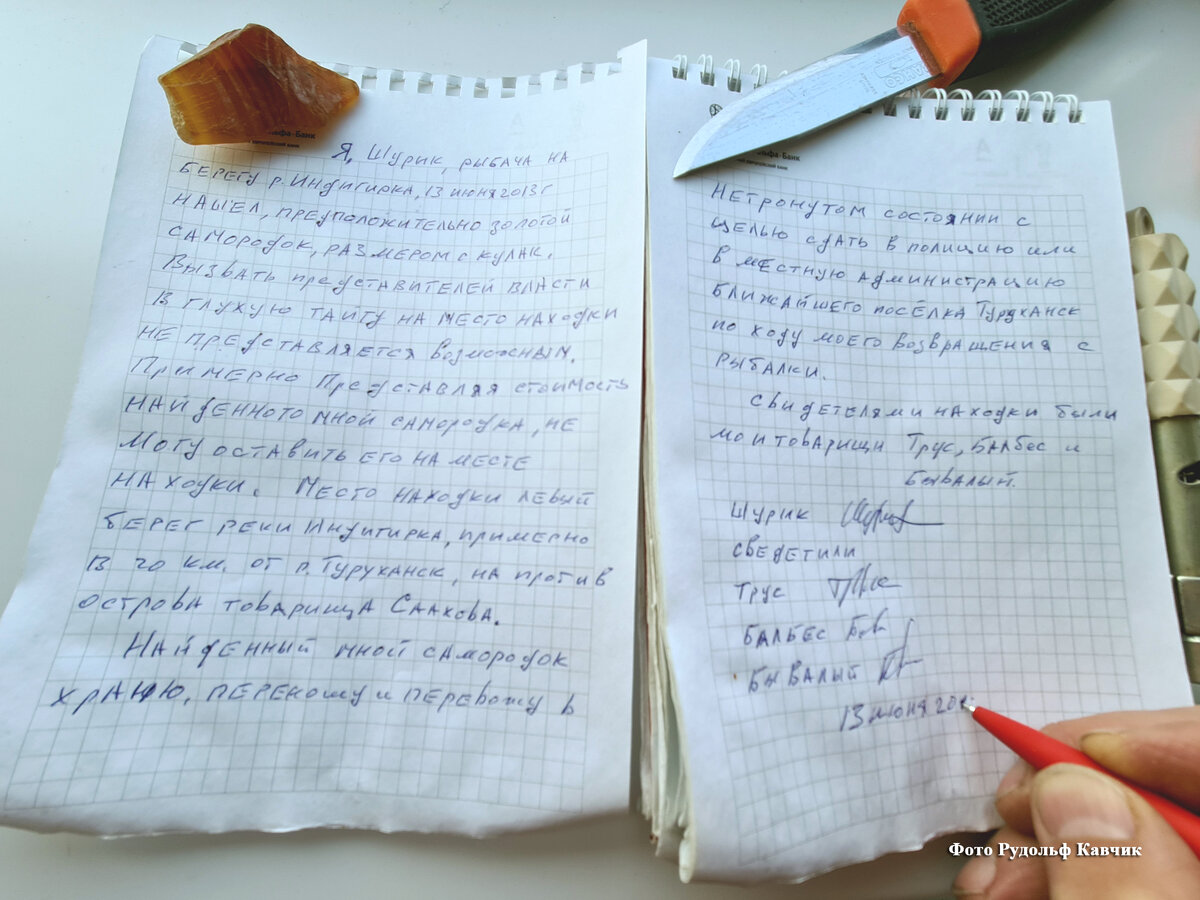 фа-Банк
Я, Шурик, рыбача на
берегу р. Индигирка, 13 июня 2013 г
нашел, предположительно золотой
самородок, размером с кулак.
Вызвать представителей власти
в глухую тайгу на место находки
не представляется возможным.
Примерно представляя стоимость
найденного мной самородка, не
могу оставить его на месте
находки. Место находки левый
берег реки Индигирка, примерно
в 20 км. от п. Туруханск, на против
острова товарища Саахова.
Найденный мной самородок
храню, переношу и перевожу в
фа-Банк
нетронутом состоянии с
целью сдать в полицию или
в местную администрацию
ближайшего посёлка Туруханск
по ходу моего возвращения с
рыбалки.
Свидетелями находки были
мои товарищи Трус, Балбес и
Бывалый.
Шурик
Сведетили
Трус
Балбес
Бывалый
13 июня 20
Фото Рудольф Кавчик